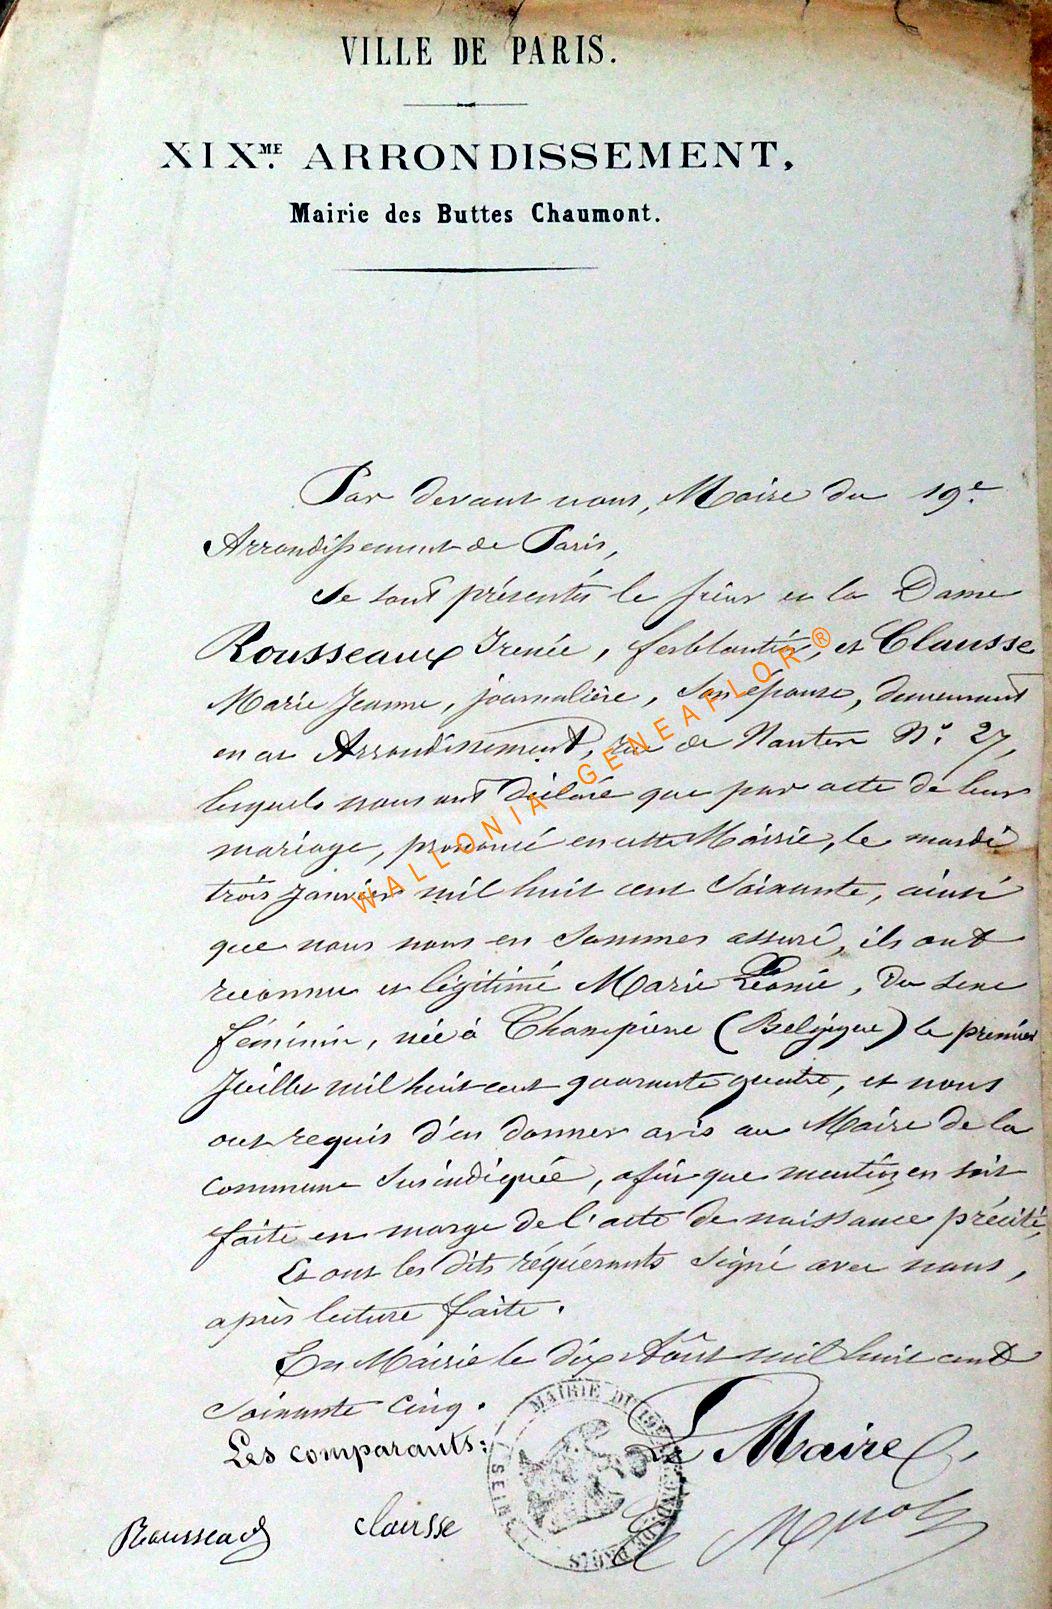 VILLE DE PARIS.
XIXME. ARRONDISSEMENT,
Mairie des Buttes Chaumont.
Par devant nous, Maire du 19e
Arrondissement de Paris,
Se sont présentés le sieur et la Dame
Rousseaux Irenée, ferblantier, et Clausse
Marie Jeanne, journalière, son épouse, demeurant
en cet Arrondissement, rue de Nantes No. 27,
lesquels nous ont déclaré que par acte de leur
mariage, prononcé en cette Mairie, le mardi
trois Janvier mil huit cent soixante, ainsi
que nous nous en sommes assuré, ils ont
reconnu et légitimé Marie Léonie, du sexe
féminin, née à (Belgique) le premier
Juillet mil huit cent quarante quatre, et nous
ont requis d'en donner avis au Maire de la
commune susindiquée, afin que mention en soit
faite en marge de l'acte de naissance précité,
Et ont les dits réquérants signé avec nous,
après lecture faite.
En Mairie le dix Août mil huit cent
soixante cinq.
Les comparants:
Le Maire,
Rousseaux clausse
MAIRIE DU 19E ARRONDT DE PARIS
SEINE
WALLONIA-GENEAFLOR®